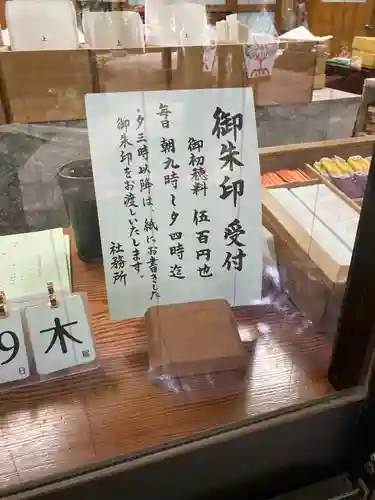 御朱印受付
御初穂料 伍百円也
毎日 朝九時〜夕四時迄
・夕三時以降は、紙にお書きした
御朱印をお渡しいたします。
社務所
9日
木
上
上
上